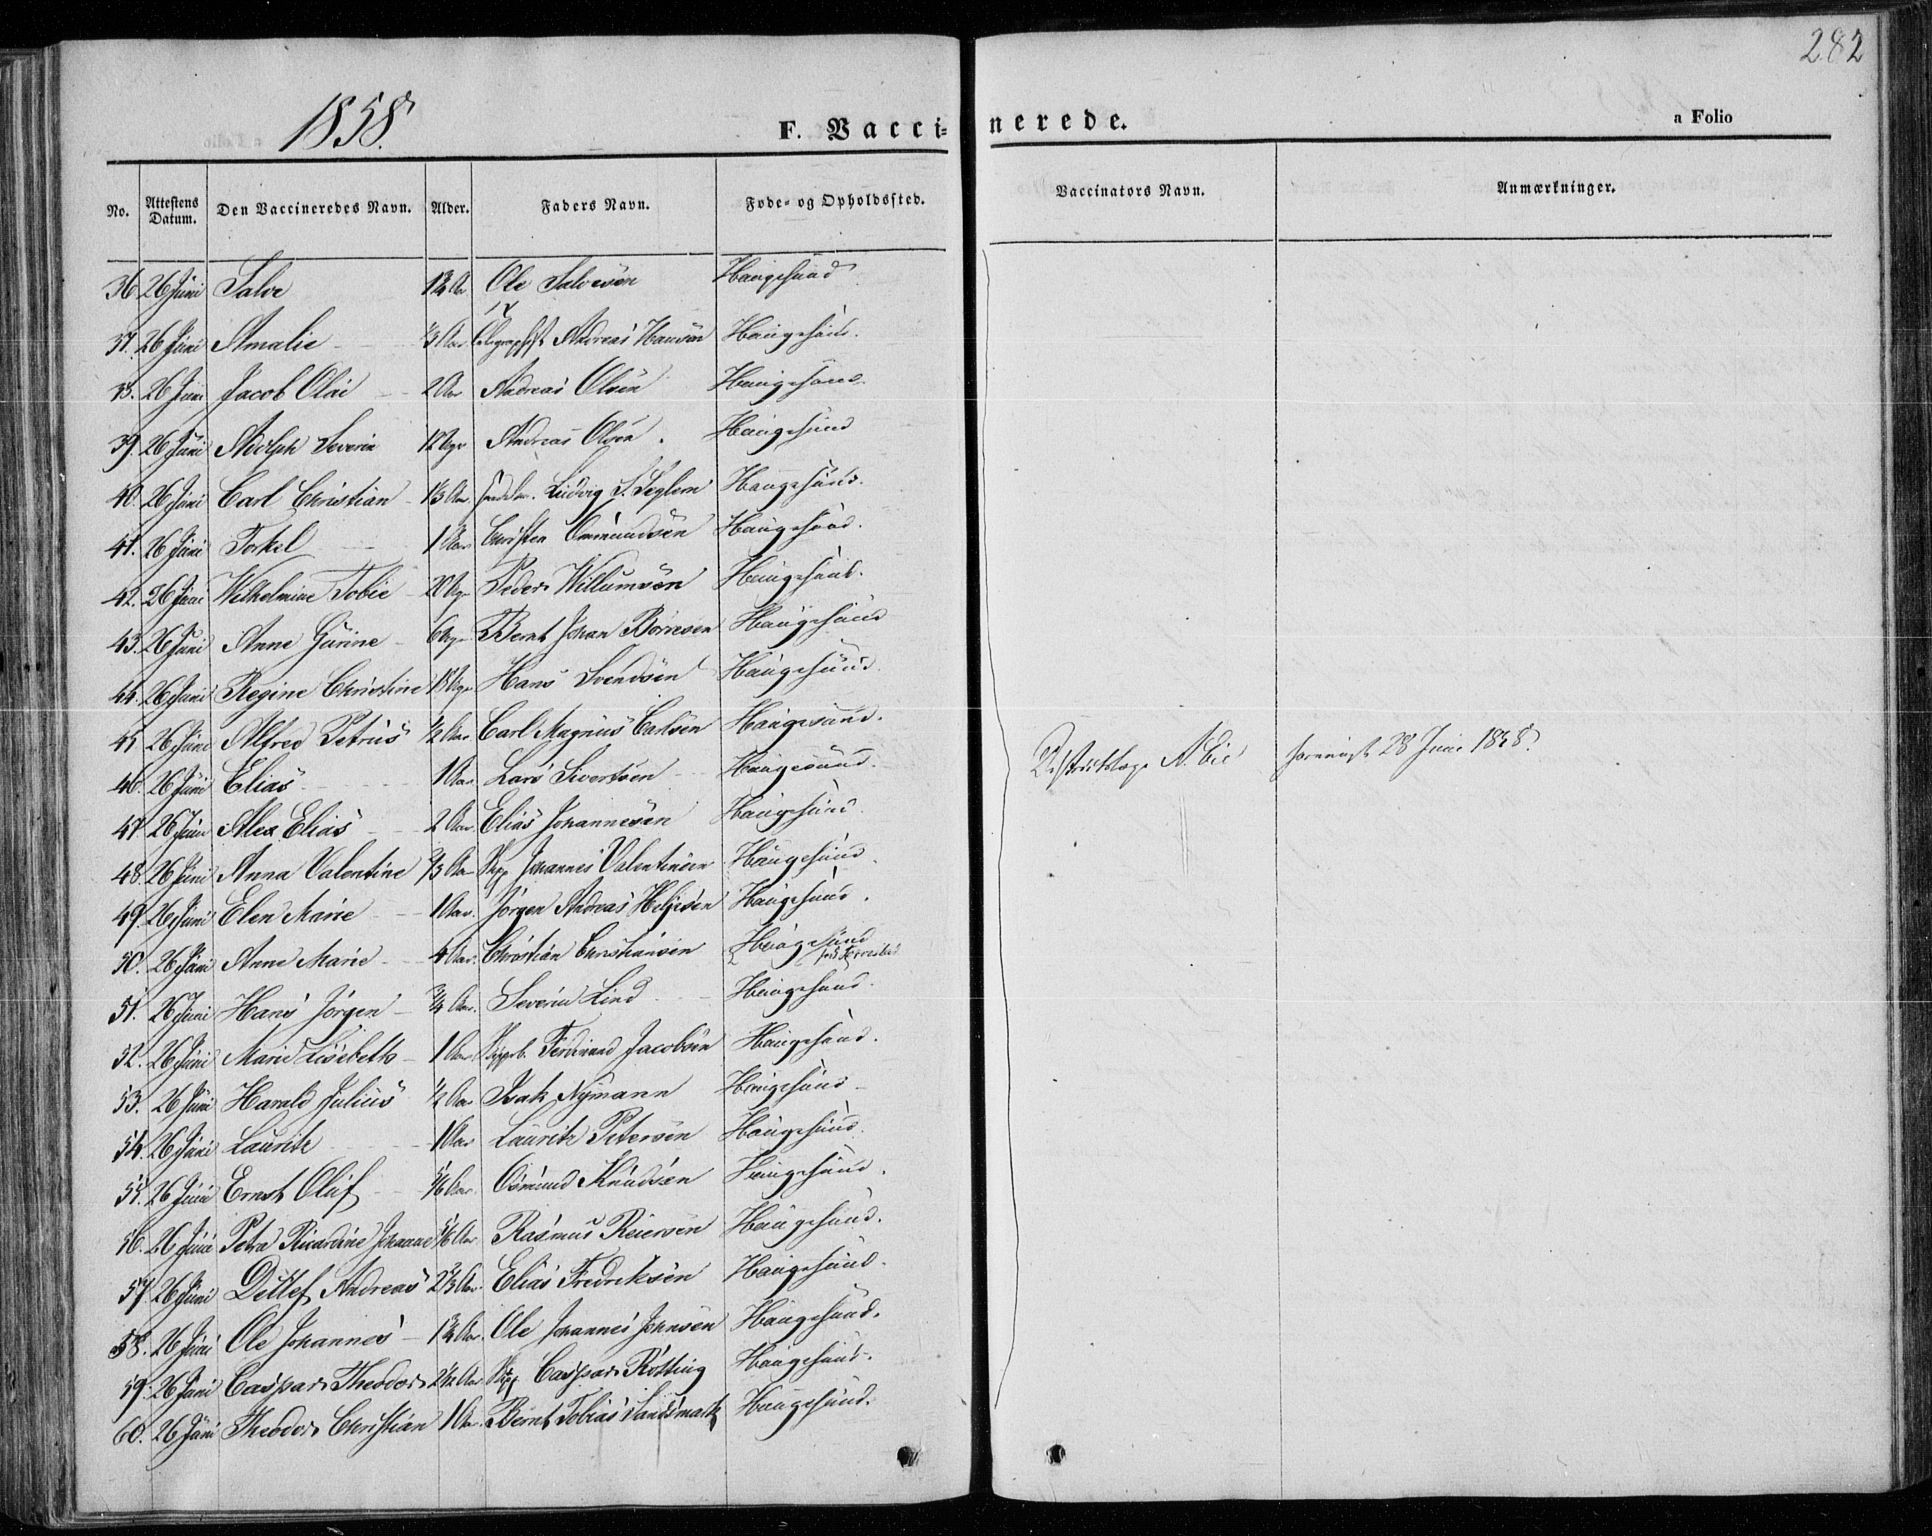 282
1858.
F. Vaccinerede.
a Folio
No. Attestens Datum. Den Vaccineredes Navn. Alder. Faders Navn. Føde- og Opholdssted. Vaccinators Navn. Anmærkninger.
36 26 Juni Salve 1¾ Aar Ole Salvesen Haugesund
37. 26 Juni Amalie Aar Andreas Hansen Haugesund.
38. 26 Juni Jacob Olai 2 Aar Andreas Olsen Haugesund.
39. 26 Juni Adolph Severin 12 Uger Andreas Olsen. Haugesund
40. 26 Juni Carl Christian Aar Ludvig S. Seglem Haugesund.
41. 26 Juni Torkel 1 Aar Christen Ommundsen Haugesund.
42. 26 Juni Wilhelmine Tobie 20 Uger Peder Willumsen Haugesund.
43. 26 Juni Anne Gurine 6 Uger Bernt Johan Børresen Haugesund
44. 26 Juni Regine Christine 18 Uger Hans Svendsen Haugesund.
45 26 Juni Alfred Petrus ½ Aar Carl Magnus Carlsen Haugesund.
46. 26 Juni Elias 1 Aar Lars Sivertsen Haugesund. Districtslæge N. Bie 28 Juni 1858.
47. 26 Juni Alex Elias 2 Aar Elias Johannesen Haugesund
48. 26 Juni Anna Valentine ⅔ Aar Skpp Johannes Valentinsen Haugesund.
49. 26 Juni Elen Marie 1 Aar. Jörgen Andreas Helgesen Haugesund.
50. 26 Juni Anne Marie 4 Aar. Christian Christiansen Haugesund
51. 26 Juni Hans Jörgen ¾ Aar. Severin Lind Haugesund.
52. 26 Juni Marie Lisebeth 1 Aar Ferdinand Jacobsen Haugesund.
53. 26 Juni Harald Julius ½ Aar Isak Nymann Haugesund
54. 26 Juni Lauritz 1 Aar Lauritz Petersen Haugesund
55. 26 Juni Ernst Oluf 5/6 Aar. Osmund Knudsen Haugesund.
56. 26 Juni Petra Ricardine Johanne 5/6 Aar Rasmus Reiersen Haugesund.
57. 26 Juni Detlef Andreas 2⅔ Aar. Elias Fredriksen Haugesund.
58. 26 Juni Ole Johannes 1¾ Aar. Ole Johannes Johnsen Haugesund.
59. 26 Juni Caspar Theodor 2½ Aar Skpp Caspar Røtting Haugesund.
60. 26 Juni Theodor Christian 1 Aar. Bernt Tobias Sandsmark Haugesund.